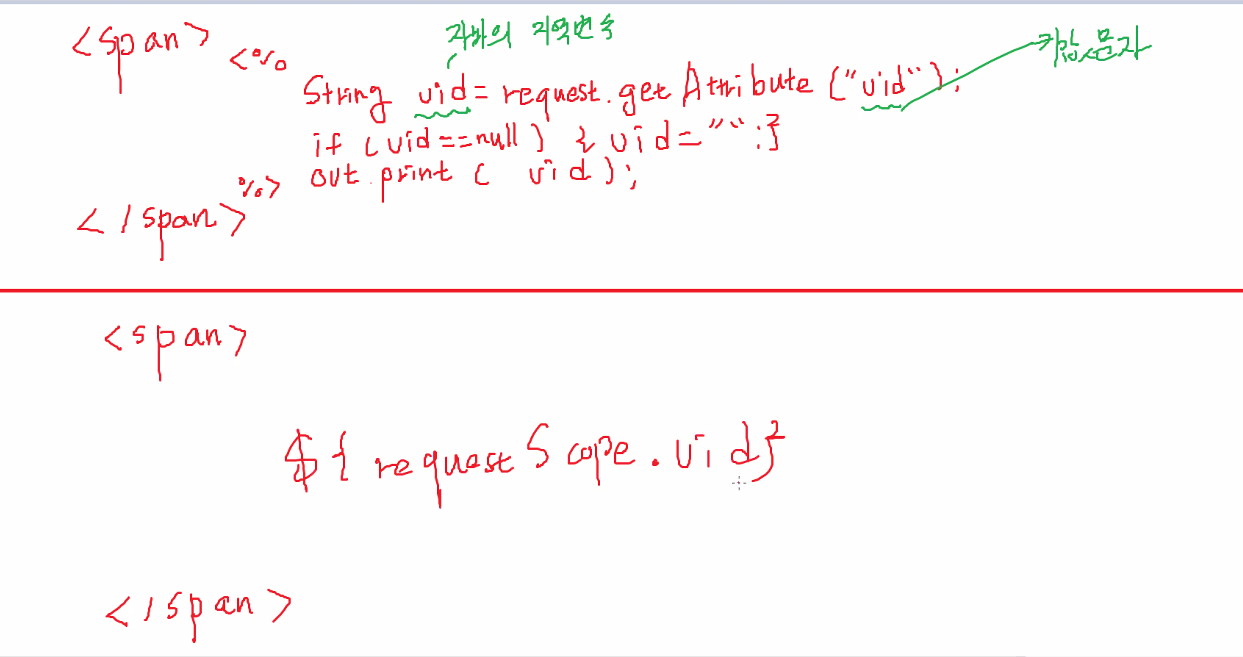 자바의 지역변수
<span>
<%
String uid = request.getAttribute ("uid");
if (uid==null) { uid="";}
out.print ( uid );
%>
</span>
<span>
${requestScope.uid}
</span>